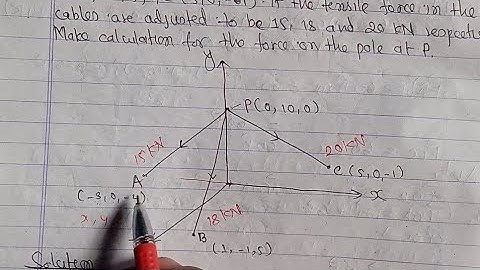 If the tensile force in the
cables are adjusted to be 15, 18 and 20 kN respectiv
Make calculation for the force on the pole at P.
y
P(0, 10, 0)
15 kN
20 kN
A
C (5, 0, -1)
(-3, 0, -4)
x
x, y
18 kN
B
(1, -1, 5)
Solution